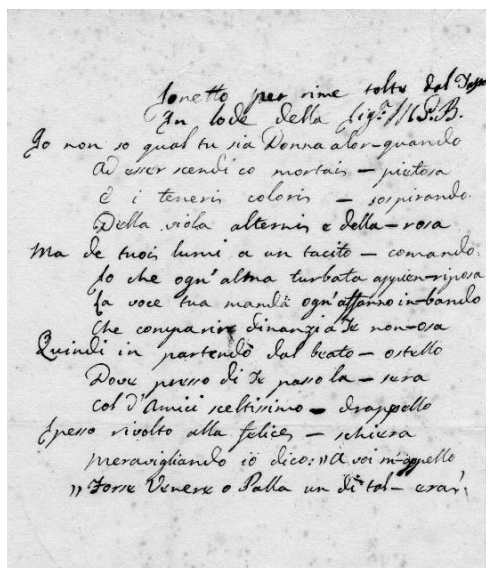 Sonetto per rime tolte dal Tasso
In lode della Sigra M. P. B.
Io non so qual tu sia Donna alor-quando
Ad esser scendi co mortais - pietosa
E i teneris coloris - sospirando
Della viola alternis e della - rosa
Ma de tuois lumi a un tacito - comando
So che ogn'alma turbata appien-riposa
La voce tua manda ogn'affanno in-bando
Che comparire dinanzi a Te non-osa
Quindi in partendo dal beato - ostello
Dove presso di Te passo la - sera
Col d'Amici sceltissimo - drappello
Spesso rivolto alla felices - schiera
meravigliando io dico: " A voi m'-appello
" Forse Venere o Palla un dì tal - era"